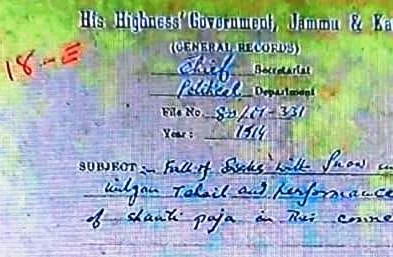 His Highness' Government, Jammu & Ka
(GENERAL RECORDS)
18-E
Chief Secretariat
Political Department
File No. 331
Year: 1914
SUBJECT:- Fall of Snakes with Snow in
Tehsil and performance
of shanti puja in this conne